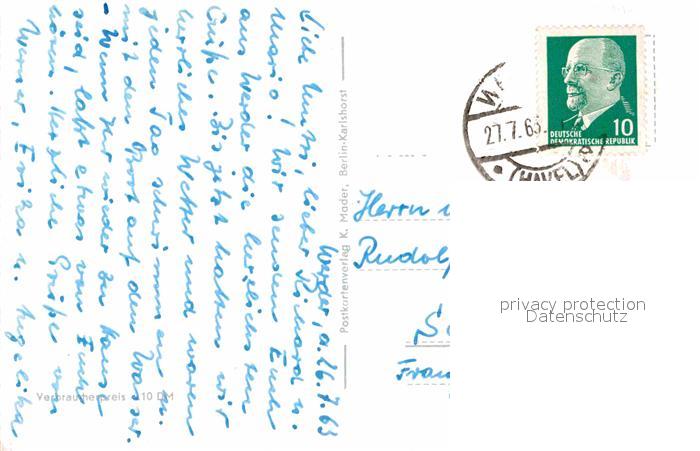 Werder, d. 26.7.63
Liebe Mutti, lieber Richard u.
Mario! Wir senden Euch
aus Werder die herzlichsten
Grüße. Bis jetzt hatten wir
herrliches Wetter und waren
jeden Tag schwimmen u.
mit dem Boot auf dem Wasser.
- Wenn Ihr wieder zu Haus
seid, laßt etwas von Euch
hören. Herzliche Grüße von
Werner, Erika u. Angelika
Verbraucherpreis 10 DM
Postkartenverlag K. Mader, Berlin-Karlshorst
27.7.63
(HAVEL)
10
DEUTSCHE
DEMOKRATISCHE REPUBLIK
Herrn
Rudol
Fran
privacy protection
Datenschutz